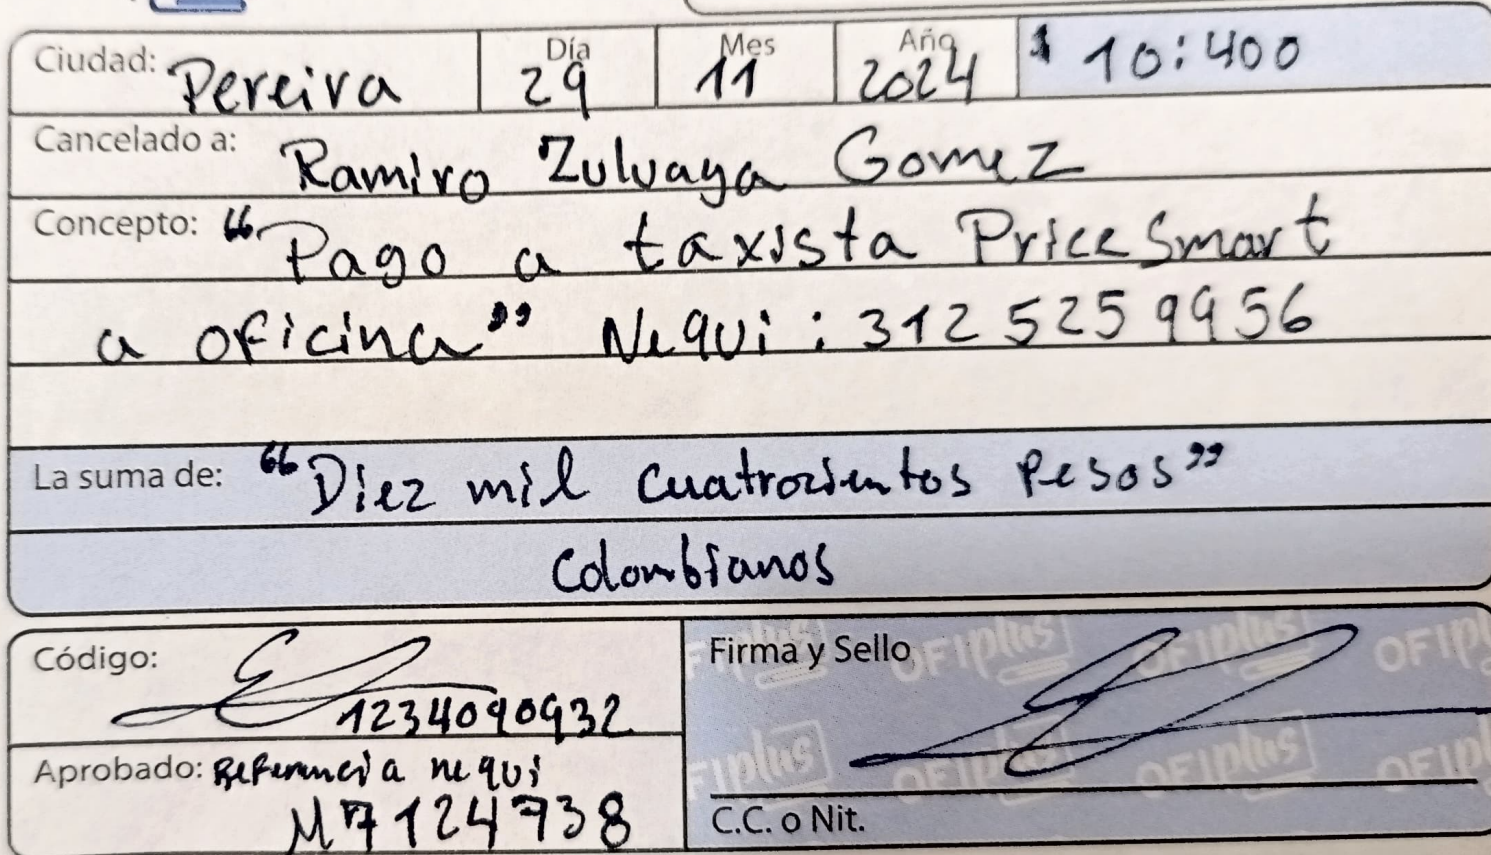 Ciudad: Pereira Día 29 Mes 11 Año 2024 $ 10:400
Cancelado a: Ramiro Zuluaya Gomez
Concepto: “Pago a taxista PriceSmart
a oficina” Nequi: 312 525 9956
La suma de: “Diez mil cuatrocientos Pesos”
Colombianos
Código: 1234090932
Firma y Sello
Aprobado: Referencia nequi
M7124738
C.C. o Nit.
OFIplus OFIplus OFIplus OFIpl
OFIplus OFIplus OFIplus OFIpl